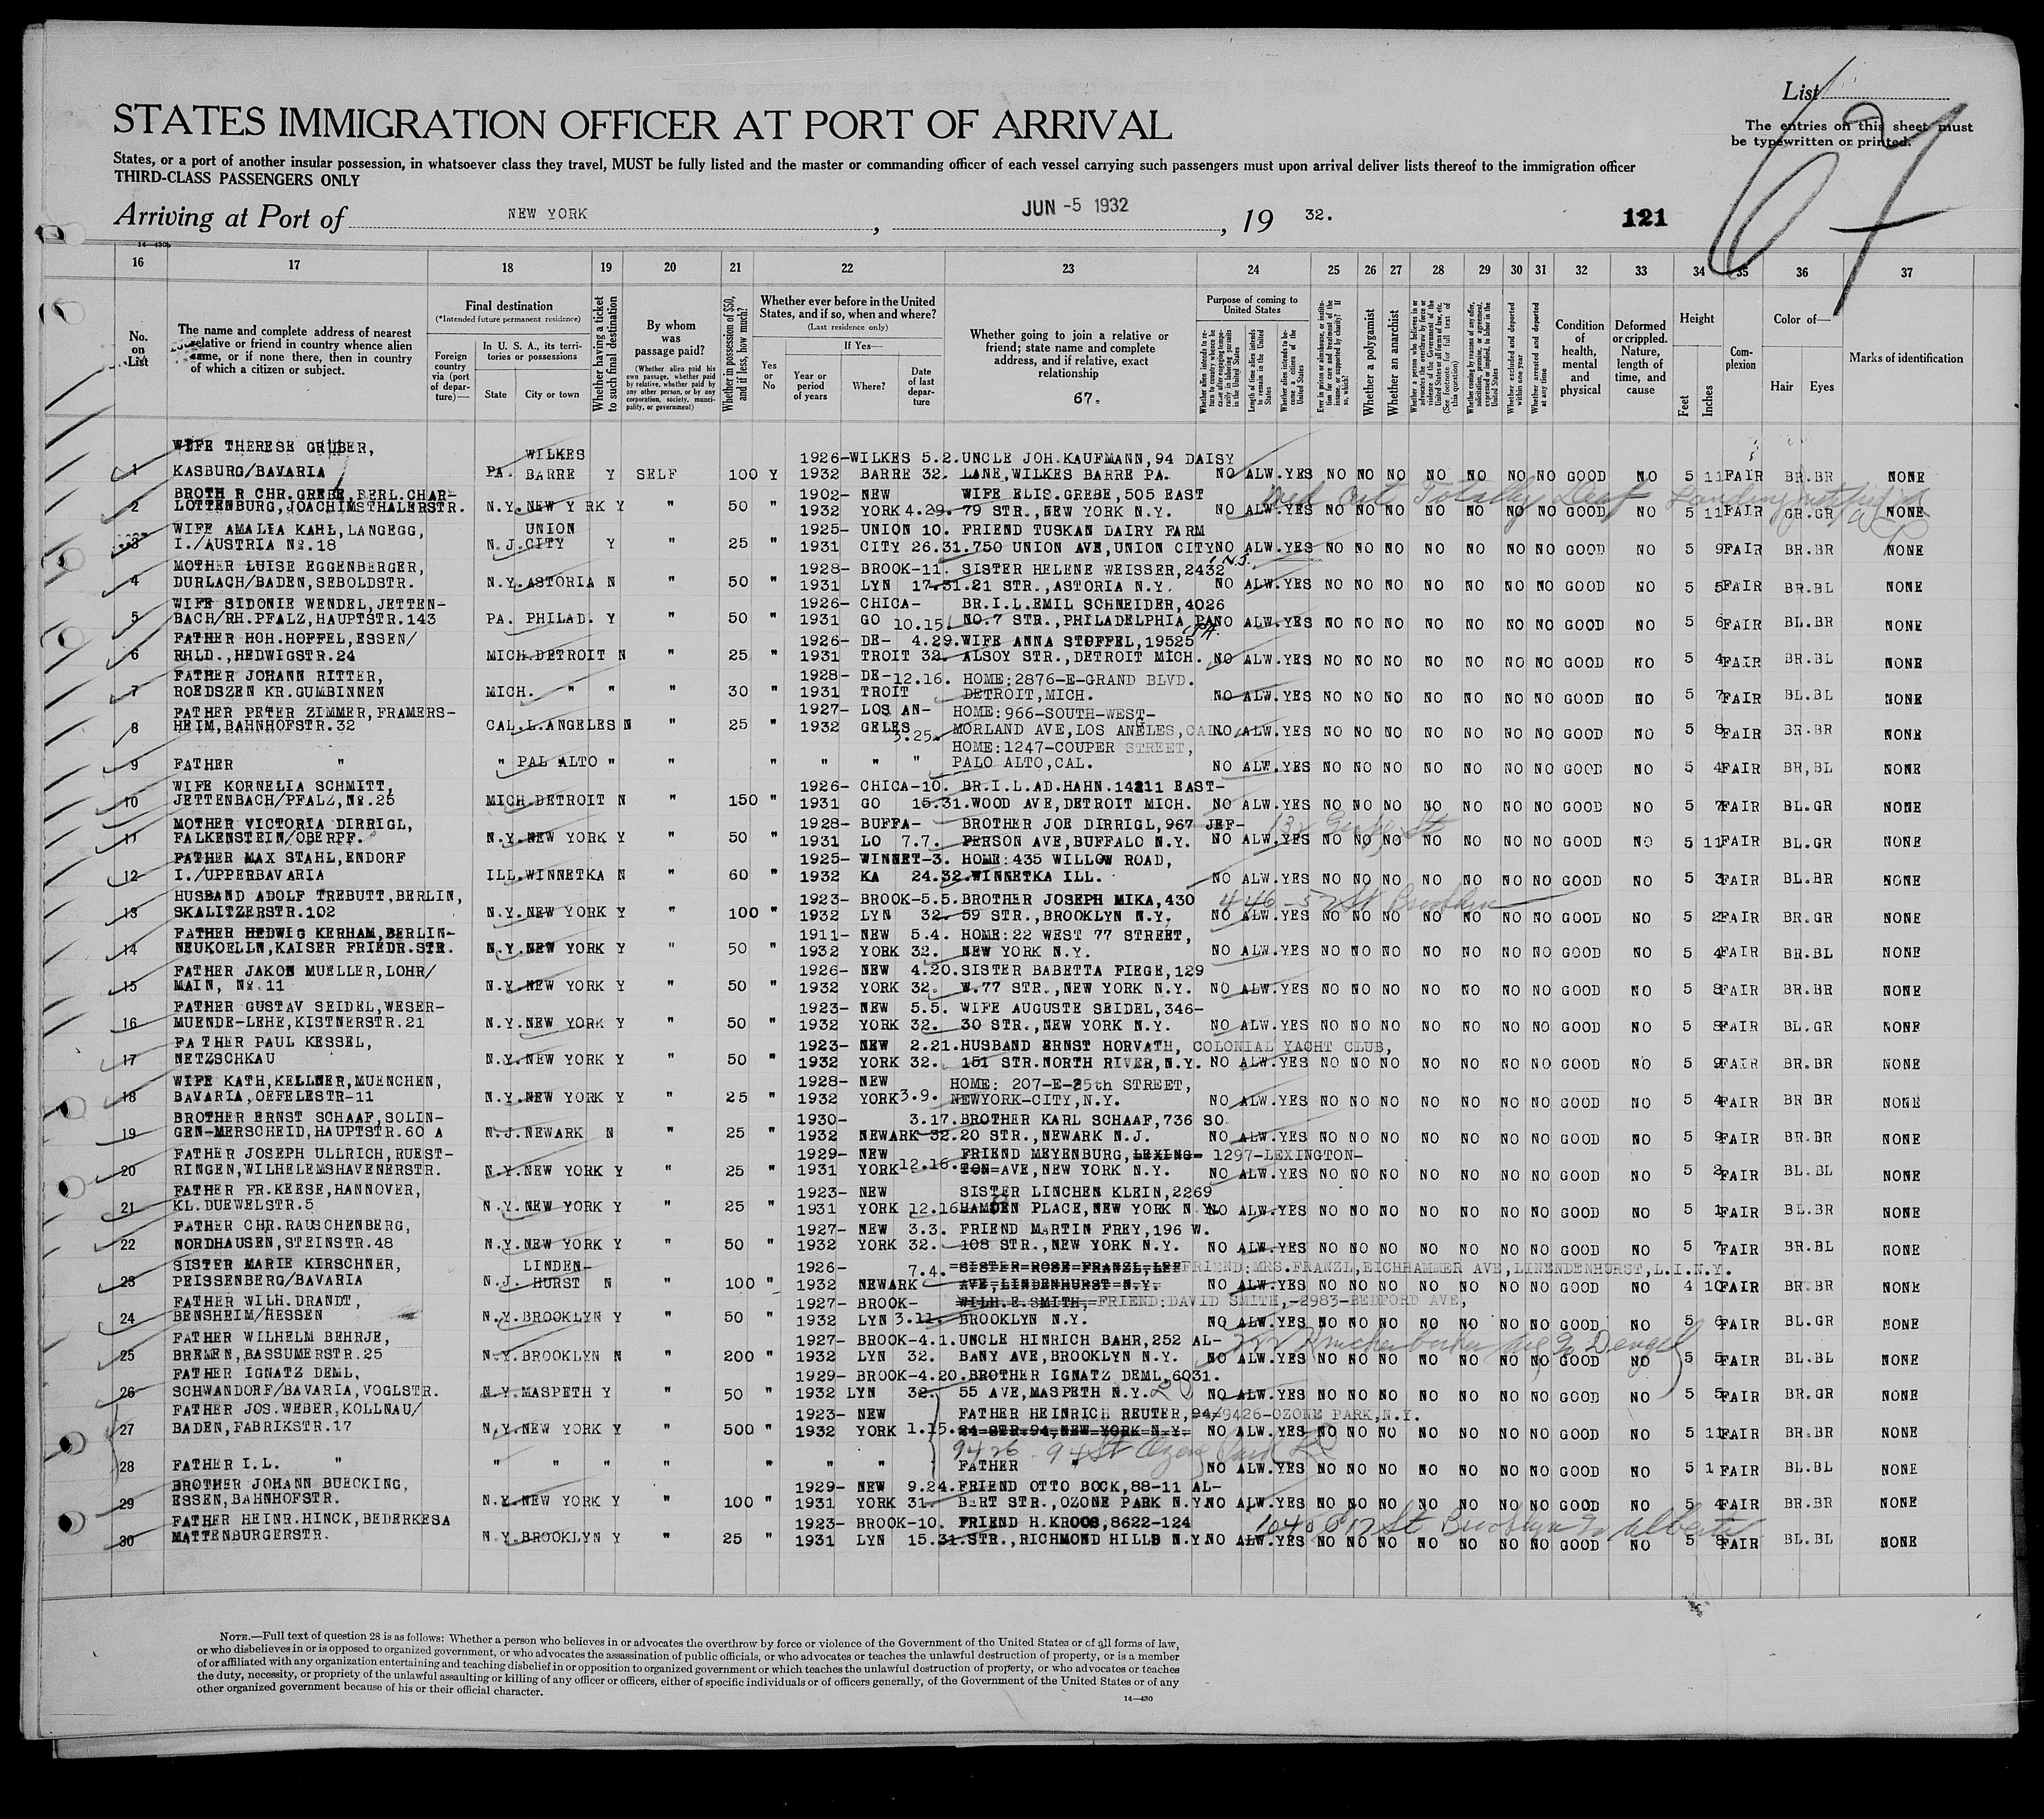 List
The entries on this sheet must
be typewritten or printed.
67
STATES IMMIGRATION OFFICER AT PORT OF ARRIVAL
States, or a port of another insular possession, in whatsoever class they travel, MUST be fully listed and the master or commanding officer of each vessel carrying such passengers must upon arrival deliver lists thereof to the immigration officer
THIRD-CLASS PASSENGERS ONLY
Arriving at Port of NEW YORK, JUN -5 1932, 19 32. 121
14—430b
16 17 18 19 20 21 22 23 24 25 26 27 28 29 30 31 32 33 34 35 36 37
No. on List
The name and complete address of nearest relative or friend in country whence alien came, or if none there, then in country of which a citizen or subject.
Final destination
(*Intended future permanent residence)
Foreign country via (port of departure)—
In U. S. A., its territories or possessions
State City or town
Whether having a ticket to such final destination
By whom was passage paid?
(Whether alien paid his own passage, whether paid by relative, whether paid by any other person, or by any corporation, society, municipality, or government)
Whether in possession of $50, and if less, how much?
Whether ever before in the United States, and if so, when and where?
(Last residence only)
Yes or No
If Yes—
Year or period of years
Where?
Date of last departure
Whether going to join a relative or friend; state name and complete address, and if relative, exact relationship
67.
Purpose of coming to United States
Whether a polygamist
Whether an anarchist
Whether excluded and deported within one year
Whether arrested and deported at any time
Condition of health, mental and physical
Deformed or crippled. Nature, length of time, and cause
Height
Feet Inches
Complexion
Color of—
Hair Eyes
Marks of identification
WIFE THERESE GRUBER, WILKES 1926-WILKES 5.2.UNCLE JOH.KAUFMANN,94 DAISY
1 KASBURG/BAVARIA PA. BARRE Y SELF 100 Y 1932 BARRE 32. LANE,WILKES BARRE PA. NO ALW.YES NO NO NO NO NO NO NO GOOD NO 5 11 FAIR BR.BR NONE
BROTH R CHR.GREBE,BERL.CHAR- 1902- NEW WIFE ELIS.GREBE,505 EAST Med Cert Totally Deaf
2 LOTTENBURG,JOACHIMSTHALERSTR. N.Y.NEW Y RK Y " 50 " 1932 YORK 4.29. 79 STR.,NEW YORK N.Y. NO ALW.YES NO NO NO NO NO NO NO GOOD NO 5 11 FAIR GR.GR NONE
WIFE AMALIA KAHL,LANGEGG, UNION 1925- UNION 10. FRIEND TUSKAN DAIRY FARM
3 I./AUSTRIA No.18 N.J.CITY Y " 25 " 1931 CITY 26.31.750 UNION AVE,UNION CITY NO ALW.YES NO NO NO NO NO NO NO GOOD NO 5 9 FAIR BR.BR NONE
MOTHER LUISE EGGENBERGER, 1928- BROOK-11. SISTER HELENE WEISSER,2432 N.J.
4 DURLACH/BADEN,SEBOLDSTR. N.Y.ASTORIA N " 50 " 1931 LYN 17.31.21 STR.,ASTORIA N.Y. NO ALW.YES NO NO NO NO NO NO NO GOOD NO 5 5 FAIR BR.BL NONE
WIFE SIDONIE WENDEL,JETTEN- 1926- CHICA- BR.I.L.EMIL SCHNEIDER,4026
5 BACH/RH.PFALZ,HAUPTSTR.143 PA. PHILAD. Y " 50 " 1931 GO 10.15. NO.7 STR.,PHILADELPHIA PA NO ALW.YES NO NO NO NO NO NO NO GOOD NO 5 6 FAIR BL.BR NONE
FATHER HCH.HOFFEL,ESSEN/ 1926- DE- 4.29.WIFE ANNA STOFFEL,19525 PA.
6 RHLD.,HEDWIGSTR.24 MICH.DETROIT N " 25 " 1931 TROIT 32. ALSOY STR.,DETROIT MICH. NO ALW.YES NO NO NO NO NO NO NO GOOD NO 5 4 FAIR BR.BL NONE
FATHER JOHANN RITTER, 1928- DE- 12.16. HOME:2876-E-GRAND BLVD.
7 ROEDSZEN KR.GUMBINNEN MICH. " " " 30 " 1931 TROIT DETROIT,MICH. NO ALW.YES NO NO NO NO NO NO NO GOOD NO 5 7 FAIR BL.BL NONE
FATHER PETER ZIMMER,FRAMERS- 1927- LOS AN- HOME:966-SOUTH-WEST-
8 HEIM,BAHNHOFSTR.32 CAL.L.ANGELES N " 25 " 1932 GELES 3.25. MORLAND AVE,LOS ANGELES,CAL. NO ALW.YES NO NO NO NO NO NO NO GOOD NO 5 8 FAIR BR.BR NONE
HOME:1247-COUPER STREET,
9 FATHER " " PAL ALTO " " " " " " PALO ALTO,CAL. NO ALW.YES NO NO NO NO NO NO NO GOOD NO 5 4 FAIR BR,BL NONE
WIFE KORNELIA SCHMITT, 1926- CHICA-10. BR.I.L.AD.HAHN.14211 EAST-
10 JETTENBACH/PFALZ,No.25 MICH.DETROIT N " 150 " 1931 GO 15.31.WOOD AVE,DETROIT MICH. NO ALW.YES NO NO NO NO NO NO NO GOOD NO 5 7 FAIR BL.GR NONE
MOTHER VICTORIA DIRRIGL, 1928- BUFFA- BROTHER JOE DIRRIGL,967 JEF-
11 FALKENSTEIN/OBERPF. N.Y.NEW YORK Y " 50 " 1931 LO 7.7. FERSON AVE,BUFFALO N.Y. NO ALW.YES NO NO NO NO NO NO NO GOOD NO 5 11 FAIR BL.GR NONE
FATHER MAX STAHL,ENDORF 1925- WINNET-3. HOME:435 WILLOW ROAD,
12 I./UPPERBAVARIA ILL.WINNETKA N " 60 " 1932 KA 24.32.WINNETKA ILL. NO ALW.YES NO NO NO NO NO NO NO GOOD NO 5 3 FAIR BL.BR NONE
HUSBAND ADOLF TREBUTT,BERLIN, 1923- BROOK-5.5.BROTHER JOSEPH MIKA,430 446 - 57 St Brooklyn
13 SKALITZERSTR.102 N.Y.NEW YORK Y " 100 " 1932 LYN 32. 59 STR.,BROOKLYN N.Y. NO ALW.YES NO NO NO NO NO NO NO GOOD NO 5 2 FAIR BR.GR NONE
FATHER HEDWIG KERHAM,BERLIN- 1911- NEW 5.4. HOME:22 WEST 77 STREET,
14 NEUKOELLN,KAISER FRIEDR.STR. N.Y.NEW YORK Y " 50 " 1932 YORK 32. NEW YORK N.Y. NO ALW.YES NO NO NO NO NO NO NO GOOD NO 5 4 FAIR BR.BL NONE
FATHER JAKOB MUELLER,LOHR/ 1926- NEW 4.20.SISTER BABETTA FIEGE,129
15 MAIN, No.11 N.Y.NEW YORK Y " 50 " 1932 YORK 32. W.77 STR.,NEW YORK N.Y. NO ALW.YES NO NO NO NO NO NO NO GOOD NO 5 8 FAIR BR.BR NONE
FATHER GUSTAV SEIDEL,WESER- 1923- NEW 5.5. WIFE AUGUSTE SEIDEL,346-
16 MUENDE-LEHE,KISTNERSTR.21 N.Y.NEW YORK Y " 50 " 1932 YORK 32. 30 STR.,NEW YORK N.Y. NO ALW.YES NO NO NO NO NO NO NO GOOD NO 5 8 FAIR BL.GR NONE
FA THER PAUL KESSEL, 1923- NEW 2.21.HUSBAND ERNST HORVATH, COLONIAL YACHT CLUB,
17 NETZSCHKAU N.Y.NEW YORK Y " 50 " 1932 YORK 32. 151 STR.NORTH RIVER,N.Y. NO ALW.YES NO NO NO NO NO NO NO GOOD NO 5 9 FAIR BR.BR NONE
WIFE KATH,KELLNER,MUENCHEN, 1928- NEW HOME: 207-E-85th STREET,
18 BAVARIA,OEFELESTR-11 N.Y.NEW YORK Y " 25 " 1932 YORK 3.9. NEWYORK-CITY,N.Y. NO ALW.YES NO NO NO NO NO NO NO GOOD NO 5 4 FAIR BR BR NONE
BROTHER ERNST SCHAAF,SOLIN- 1930- 3.17.BROTHER KARL SCHAAF,736 SO.
19 GEN-MERSCHEID,HAUPTSTR.60 A N.J.NEWARK N " 25 " 1932 NEWARK 32.20 STR.,NEWARK N.J. NO ALW.YES NO NO NO NO NO NO NO GOOD NO 5 9 FAIR BR.BR NONE
FATHER JOSEPH ULLRICH,RUEST- 1929- NEW FRIEND MEYENBURG,LEXING- 1297-LEXINGTON-
20 RINGEN,WILHELEMSHAVENERSTR. N.Y.NEW YORK Y " 25 " 1931 YORK 12.16. TON=AVE,NEW YORK N.Y. NO ALW.YES NO NO NO NO NO NO NO GOOD NO 5 2 FAIR BL.BL NONE
FATHER FR.KEESE,HANNOVER, 1923- NEW SISTER LINCHEN KLEIN,2269
21 KL.DUEWELSTR.5 N.Y.NEW YORK Y " 25 " 1931 YORK 12.16. HAMDEN PLACE,NEW YORK N.Y. NO ALW.YES NO NO NO NO NO NO NO GOOD NO 5 1 FAIR BL.BR NONE
FATHER CHR.RAUSCHENBERG, 1927- NEW 3.3. FRIEND MARTIN FREY,196 W.
22 NORDHAUSEN,STEINSTR.48 N.Y.NEW YORK Y " 50 " 1932 YORK 32. 108 STR.,NEW YORK N.Y. NO ALW.YES NO NO NO NO NO NO NO GOOD NO 5 7 FAIR BR.BL NONE
SISTER MARIE KIRSCHNER, LINDEN- 1926- 7.4. SISTER=ROSE=FRANZL,LEE FRIEND:MRS.FRANZL,EICHHAMMER AVE,LINENDENHURST,L.I.N.Y.
23 PEISSENBERG/BAVARIA N.J. HURST N " 100 " 1932 NEWARK AVE,LINDENHURST=N.Y. NO ALW.YES NO NO NO NO NO NO NO GOOD NO 4 10 FAIR BR.BR NONE
FATHER WILH.DRANDT, 1927- BROOK- WILH.E.SMITH,=FRIEND:DAVID SMITH,-2983-BEDFORD AVE,
24 BENSHEIM/HESSEN N.Y.BROOKLYN Y " 50 " 1932 LYN 3.11. BROOKLYN N.Y. NO ALW.YES NO NO NO NO NO NO NO GOOD NO 5 6 FAIR BL.GR NONE
FATHER WILHELM BEHRJE, 1927- BROOK-4.1.UNCLE HINRICH BAHR,252 AL- Knickerbocker Ave
25 BREMEN,BASSUMERSTR.25 N.Y.BROOKLYN N " 200 " 1932 LYN 32. BANY AVE,BROOKLYN N.Y. NO ALW.YES NO NO NO NO NO NO NO GOOD NO 5 5 FAIR BL.BL NONE
FATHER IGNATZ DEML, 1929- BROOK-4.20.BROTHER IGNATZ DEML,6031.
26 SCHWANDORF/BAVARIA,VOGLSTR. N.Y.MASPETH Y " 50 " 1932 LYN 32. 55 AVE,MASPETH N.Y. NO ALW.YES NO NO NO NO NO NO NO GOOD NO 5 5 FAIR BR.GR NONE
FATHER JOS.WEBER,KOLLNAU/ 1923- NEW FATHER HEINRICH REUTER,94/9426-OZONE PARK,N.Y.
27 BADEN,FABRIKSTR.17 N.Y.NEW YORK Y " 500 " 1932 YORK 1.15. 24=STR.94,NEW=YORK=N.Y. NO ALW.YES NO NO NO NO NO NO NO GOOD NO 5 11 FAIR BR.BR NONE
9426 - 94 St Ozone Park
28 FATHER I.L. " " " " " " " " FATHER NO ALW.YES NO NO NO NO NO NO NO GOOD NO 5 1 FAIR BL.BL NONE
BROTHER JOHANN BUECKING, 1929- NEW 9.24.FRIEND OTTO BOCK,88-11 AL-
29 ESSEN,BAHNHOFSTR. N.Y.NEW YORK Y " 100 " 1931 YORK 31. BERT STR.,OZONE PARK N.Y. NO ALW.YES NO NO NO NO NO NO NO GOOD NO 5 4 FAIR BR.BR NONE
FATHER HEINR.HINCK,BEDERKESA 1923- BROOK-10. FRIEND H.KROOS,8622-124
30 MATTENBURGERSTR. N.Y.BROOKLYN Y " 25 " 1931 LYN 15.31.STR.,RICHMOND HILLS N.Y. NO ALW.YES NO NO NO NO NO NO NO GOOD NO 5 8 FAIR BL.BL NONE
NOTE.—Full text of question 28 is as follows: Whether a person who believes in or advocates the overthrow by force or violence of the Government of the United States or of all forms of law,
or who disbelieves in or is opposed to organized government, or who advocates the assassination of public officials, or who advocates or teaches the unlawful destruction of property, or is a member
of or affiliated with any organization entertaining and teaching disbelief in or opposition to organized government or which teaches the unlawful destruction of property, or who advocates or teaches
the duty, necessity, or propriety of the unlawful assaulting or killing of any officer or officers, either of specific individuals or of officers generally, of the Government of the United States or of any
other organized government because of his or their official character.
14—430